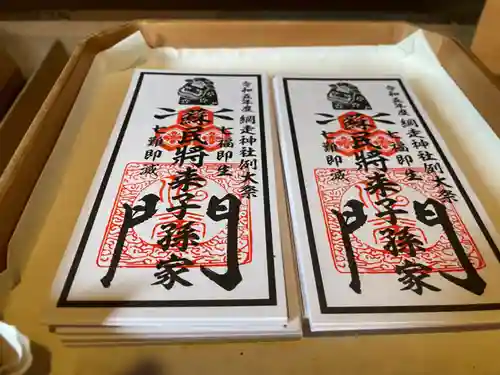 令和五年度 網走神社例大祭
七福即生
蘇民將来子孫家
門
七難即滅
令和五年度 網走神社例大祭
七福即生
蘇民將来子孫家
門
七難即滅